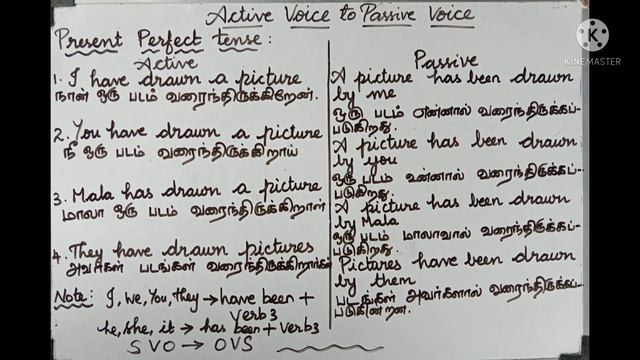 Active Voice to Passive Voice
Present Perfect tense :
Active
1. I have drawn a picture
நான் ஒரு படம் வரைந்திருக்கிறேன்.
2. You have drawn a picture
நீ ஒரு படம் வரைந்திருக்கிறாய்
3. Mala has drawn a picture
மாலா ஒரு படம் வரைந்திருக்கிறாள்
4. They have drawn pictures
அவர்கள் படங்கள் வரைந்திருக்கிறார்கள்
Note : I, we, You, they → have been +
Verb3
he, she, it → has been + Verb3
SVO → OVS
Passive
A picture has been drawn
by me
ஒரு படம் என்னால் வரைந்திருக்கப்-
படுகிறது.
A picture has been drawn
by you
ஒரு படம் உன்னால் வரைந்திருக்கப்-
படுகிறது.
A picture has been drawn
by Mala
ஒரு படம் மாலாவால் வரைந்திருக்கப்-
படுகிறது.
Pictures have been drawn
by them
படங்கள் அவர்களால் வரைந்திருக்கப்-
படுகின்றன.
KINEMASTER